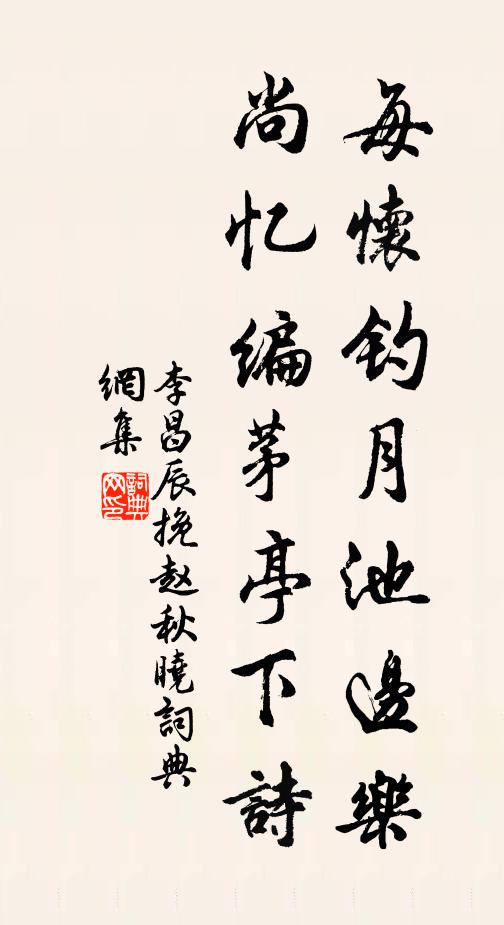 每懷钓月池邊樂
尚忆编茅亭下詩
李昌辰挽赵秋曉詞典
網集
詞典
网印